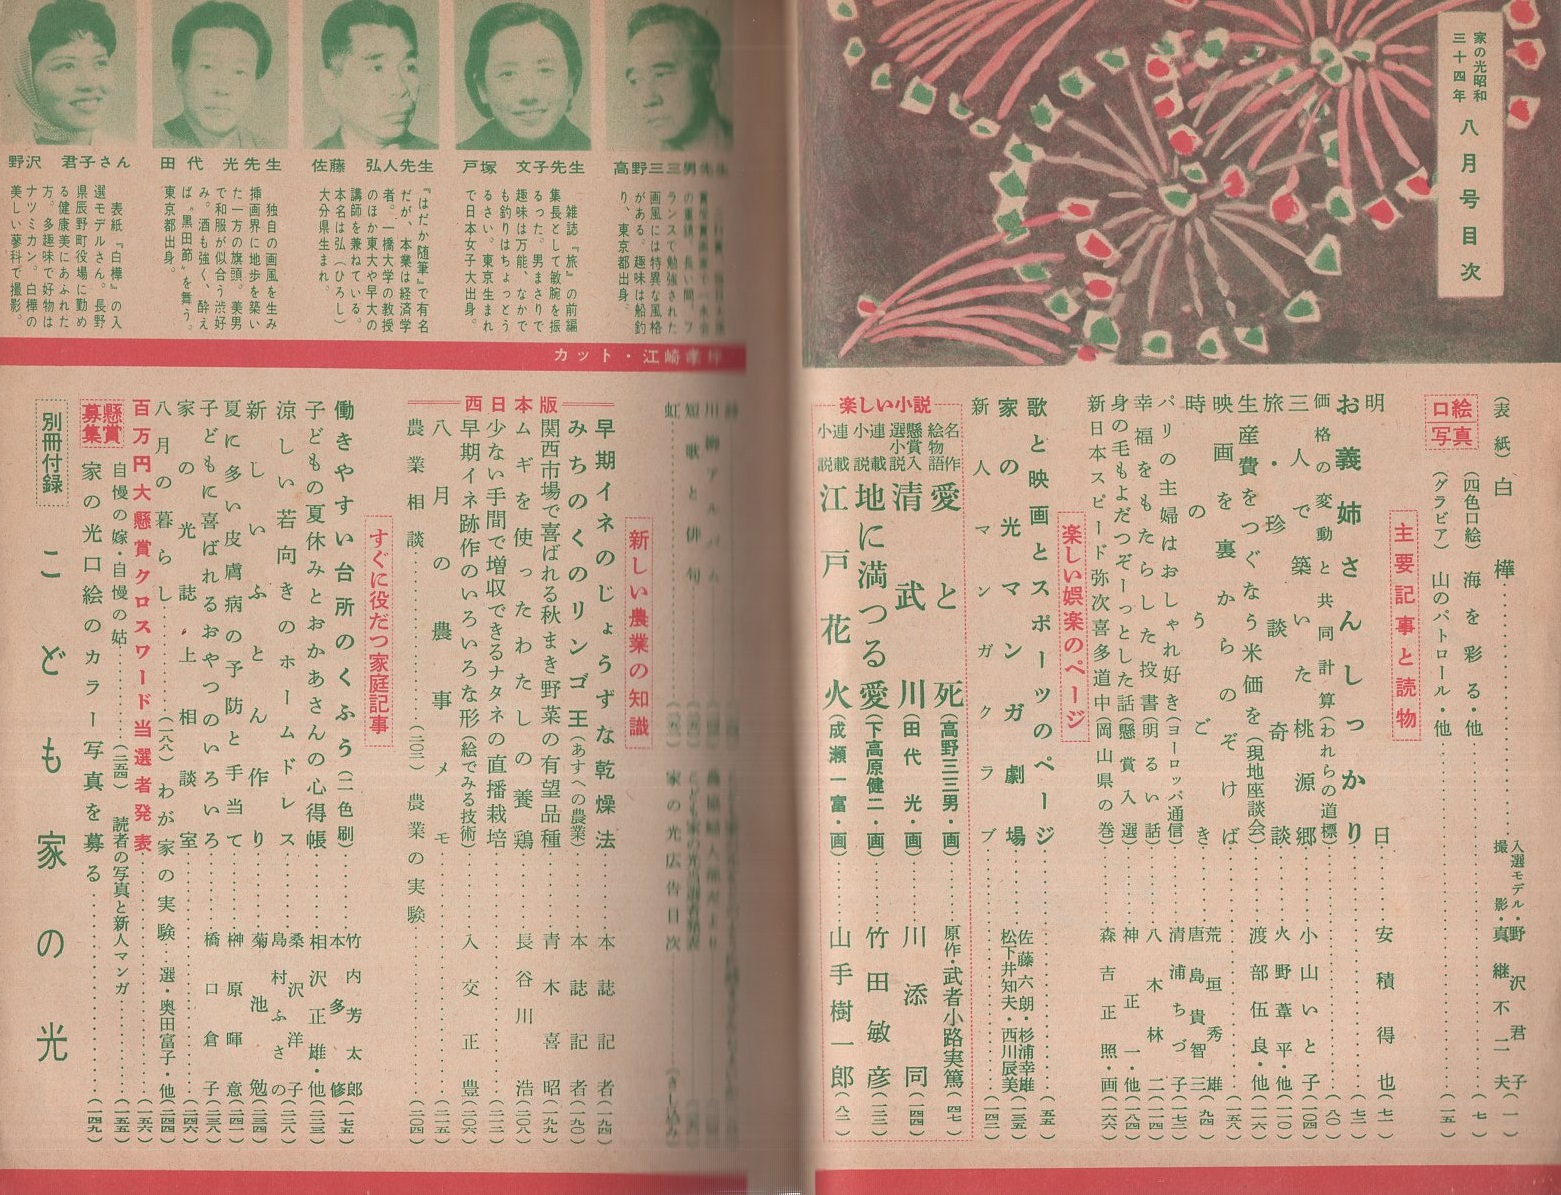 家の光昭和
三十四年
八月号目次
口絵
写真
(表紙)白樺
入選モデル・野沢君子
撮影・真継不二夫(一)
(四色口絵)海を彩る・他(七)
(グラビア)山のパトロール・他(一五)
主要記事と読物
明日 安積得也(七一)
お義姉さんしっかり(七三)
価格の変動と共同計算(われらの道標)(八〇)
三人で築いた桃源郷 小山いと子(一〇四)
旅・珍談奇談 火野葦平・他(一一〇)
生産費をつぐなう米価を(現地座談会) 渡部伍良・他(一一六)
映画を裏からのぞけば(一五八)
時のうごき 荒垣秀雄 唐島貴智三(九四)
パリの主婦はおしゃれ好き(ヨーロッパ通信) 清浦ちづ子(一七二)
幸福をもたらした投書(明るい話) 八木林二(一一四)
身の毛もよだつぞーっとした話(懸賞入選) 神正一・他(一八四)
新日本スピード弥次喜多道中(岡山県の巻) 森吉正照・画(一六六)
楽しい娯楽のページ
歌と映画とスポーツのページ(五五)
家の光マンガ劇場 佐藤六朗・杉浦幸雄 松下井知夫・西川辰美(一三五)
新人マンガクラブ(一四二)
楽しい小説
名作絵物語 愛と死(高野三三男・画) 原作・武者小路実篤(四七)
懸賞入選小説 清武川(田代光・画) 川添同(一四四)
連載小説 地に満つる愛(下高原健二・画) 竹田敏彦(一三三)
連載小説 江戸花火(成瀬一富・画) 山手樹一郎(八二)
高野三三男先生
ランスで勉強された
画風には特異な風格
がある。趣味は船釣
り、東京都出身。
戸塚 文子先生
雑誌『旅』の前編
集長として敏腕を振
るった。男まさりで
趣味は万能、なかで
も釣りはちょっとう
るさい。東京生まれ
で日本女子大出身。
佐藤 弘人先生
『はだか随筆』で有名
だが、本業は経済学
者。一橋大学の教授
のほか東大や早大の
講師を兼ねている。
本名は弘(ひろし)
大分県生まれ。
田代 光先生
独自の画風を生み
挿画界に地歩を築い
た一方の旗頭。美男
で和服が似合う渋好
み。酒も強く、酔え
ば〝黒田節〟を舞う。
東京都出身。
野沢 君子さん
表紙『白樺』の入
選モデルさん。長野
県辰野町役場に勤め
る健康美にあふれた
方。多趣味で好物は
ナツミカン。白樺の
美しい蓼科で撮影。
カット・江崎孝坪
短歌と俳句
家の光広告目次(さし込み)
新しい農業の知識
早期イネのじょうずな乾燥法 本誌記者(一九四)
みちのくのリンゴ王(あすへの農業) 本誌記者(一九〇)
西日本版
関西市場で喜ばれる秋まき野菜の有望品種 青木喜昭(一九九)
ムギを使ったわたしの養鶏 長谷川浩(二〇八)
少ない手間で増収できるナタネの直播栽培(二一二)
早期イネ跡作のいろいろな形(絵でみる技術) 入交正豊(二〇六)
八月の農事メモ(二一五)
農業相談(二〇二) 農業の実験(二〇四)
すぐに役だつ家庭記事
働きやすい台所のくふう(二色刷) 竹内芳太郎 本多修(一七五)
子どもの夏休みとおかあさんの心得帳 相沢正雄・他(二三三)
涼しい若向きのホームドレス 桑沢洋子 島村ふさの(二三八)
新しいふとん作り 菊池勉(二三四)
夏に多い皮膚病の予防と手当て 榊原暉意(二四二)
子どもに喜ばれるおやつのいろいろ 橋口倉子(二三八)
家の光誌上相談室(二四六)
八月の暮らし(一八八) わが家の実験 選・奥田富子・他(二四四)
百万円大懸賞クロスワード当選者発表(一五六)
自慢の嫁・自慢の姑(二五四) 読者の写真と新人マンガ(一五五)
懸賞
募集
家の光口絵のカラー写真を募る(一四九)
別冊付録
こども家の光